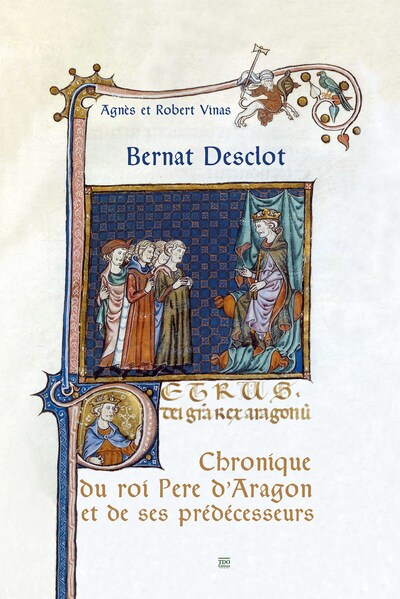 Agnès et Robert Vinas
Bernat Desclot
PETRUS.
dei gr̃a Rex aragonũ
Chronique
du roi Pere d'Aragon
et de ses prédécesseurs
TDO